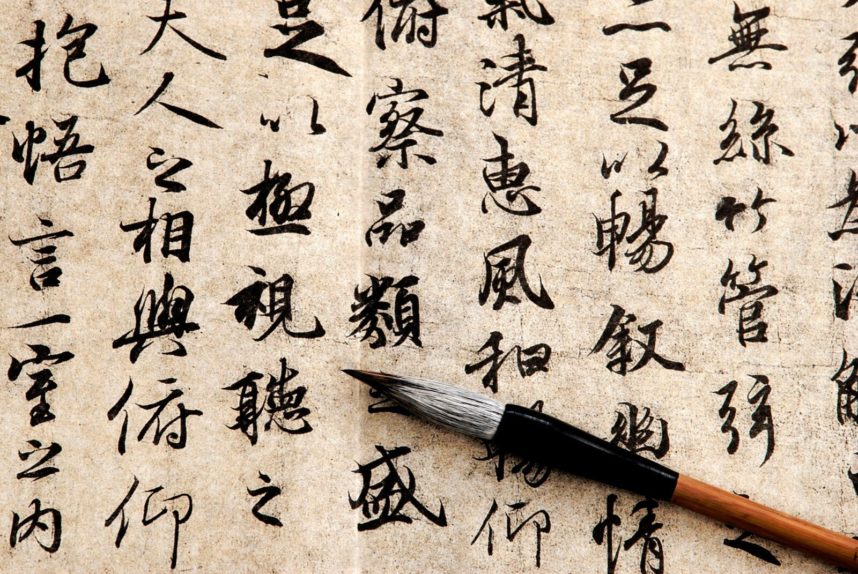 無絲竹管弦之
足以暢叙幽情
氣清惠風和暢仰
俯察品類之盛
足以極視聽之
夫人之相與俯仰
抱悟言一室之内